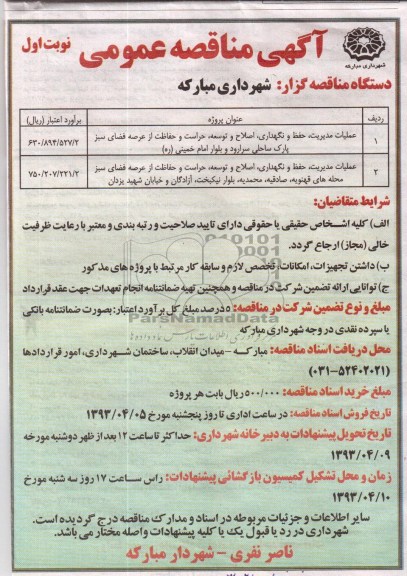 آگهی مناقصه عمومی
نوبت اول
شهرداری مبارکه
دستگاه مناقصه گزار: شهرداری مبارکه
ردیف عنوان پروژه برآورد اعتبار (ریال)
۱ عملیات مدیریت، حفظ و نگهداری، اصلاح و توسعه، حراست و حفاظت از عرصه فضای سبز
پارک ساحلی سرارود و بلوار امام خمینی (ره) ۶۳۰/۸۹۴/۵۲۷/۲
۲ عملیات مدیریت، حفظ و نگهداری، اصلاح و توسعه، حراست و حفاظت از عرصه فضای سبز
محله های قهنویه، صادقیه، محمدیه، بلوار نیکبخت، آزادگان و خیابان شهید یزدان ۷۵۰/۲۰۷/۲۲۱/۲
شرایط متقاضیان:
الف) کلیه اشخاص حقیقی یا حقوقی دارای تایید صلاحیت و رتبه بندی و معتبر با رعایت ظرفیت
خالی (مجاز) ارجاع گردد.
ب) داشتن تجهیزات، امکانات، تخصص لازم و سابقه کار مرتبط با پروژه های مذکور
ج) توانایی ارائه تضمین شرکت در مناقصه و همچنین تهیه ضمانتنامه انجام تعهدات جهت عقد قرارداد
مبلغ و نوع تضمین شرکت در مناقصه: ۵ درصد مبلغ کل برآورد اعتبار: بصورت ضمانتنامه بانکی
یا سپرده نقدی در وجه شهرداری مبارکه
محل دریافت اسناد مناقصه: مبارکه - میدان انقلاب، ساختمان شهرداری، امور قراردادها
(۰۳۱-۵۲۴۰۲۰۲۱)
مبلغ خرید اسناد مناقصه: ۵۰۰/۰۰۰ ریال بابت هر پروژه
تاریخ فروش اسناد مناقصه: در ساعات اداری تا روز پنجشنبه مورخ ۱۳۹۳/۰۴/۰۵
تاریخ تحویل پیشنهادات به دبیرخانه شهرداری: حداکثر تا ساعت ۱۲ بعد از ظهر دوشنبه مورخه
۱۳۹۳/۰۴/۰۹
زمان و محل تشکیل کمیسیون بازگشائی پیشنهادات: راس ساعت ۱۷ روز سه شنبه مورخ
۱۳۹۳/۰۴/۱۰
سایر اطلاعات و جزئیات مربوطه در اسناد و مدارک مناقصه درج گردیده است.
شهرداری در رد یا قبول یک یا کلیه پیشنهادات واصله مختار می باشد.
ناصر نفری - شهردار مبارکه
ParsNamadData